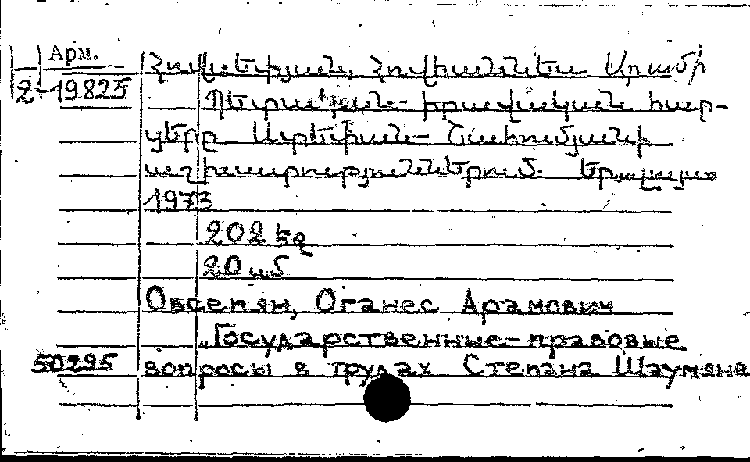 Арм.
2-19825
Հովսեփյան, Հովհաննես Արամի
Պետական-իրավական հար-
ցերը Ստեփան Շահումյանի
աշխատություններում. Երևան
1973
202 էջ
20 սմ
Овсепян, Оганес Арамович
„Государственные-правовые
50295 вопросы в трудах Степана Шаумяна